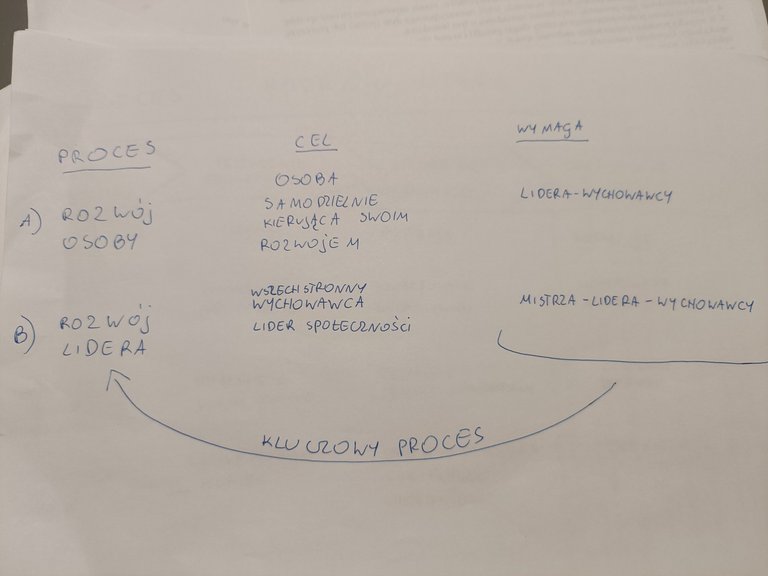 PROCES
CEL
WYMAGA
A) ROZWÓJ
OSOBY
OSOBA
SAMODZIELNIE
KIERUJĄCA SWOIM
ROZWOJEM
LIDERA-WYCHOWAWCY
B) ROZWÓJ
LIDERA
WSZECHSTRONNY
WYCHOWAWCA
LIDER SPOŁECZNOŚCI
MISTRZA-LIDERA-WYCHOWAWCY
KLUCZOWY PROCES